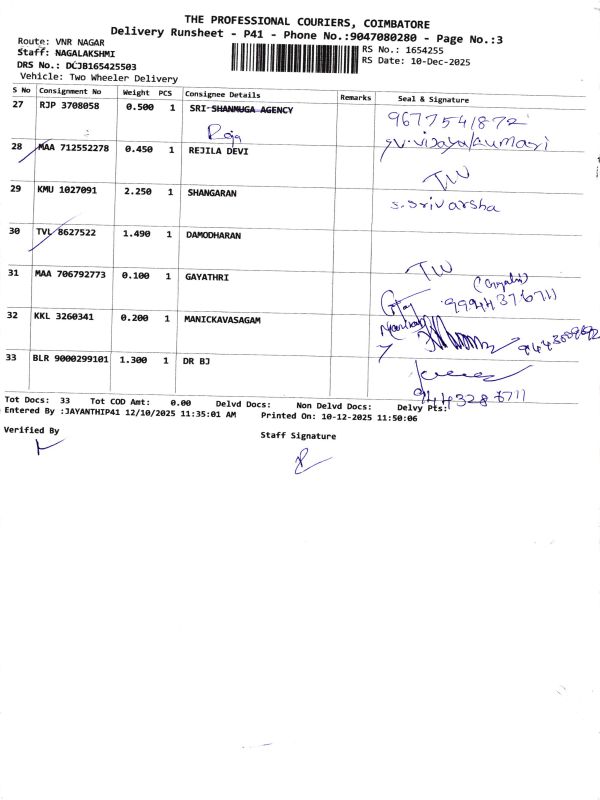 THE PROFESSIONAL COURIERS, COIMBATORE
Delivery Runsheet - P41 - Phone No.:9047080280 - Page No.:3
Route: VNR NAGAR
Staff: NAGALAKSHMI
DRS No.: DCJB165425503
Vehicle: Two Wheeler Delivery
RS No.: 1654255
RS Date: 10-Dec-2025
S No Consignment No Weight PCS Consignee Details Remarks Seal & Signature
27 RJP 3708058 0.500 1 SRI SHANMUGA AGENCY 9677541872
Raja sv.vijayakumari
28 MAA 712552278 0.450 1 REJILA DEVI
29 KMU 1027091 2.250 1 SHANGARAN S.Srivarsha
30 TVL 8627522 1.490 1 DAMODHARAN
31 MAA 706792773 0.100 1 GAYATHRI
99944376711
32 KKL 3260341 0.200 1 MANICKAVASAGAM
33 BLR 9000299101 1.300 1 DR BJ
9443286711
Tot Docs: 33 Tot COD Amt: 0.00 Delvd Docs: Non Delvd Docs: Delvy Pts:
Entered By :JAYANTHIP41 12/10/2025 11:35:01 AM Printed On: 10-12-2025 11:50:06
Verified By
Staff Signature